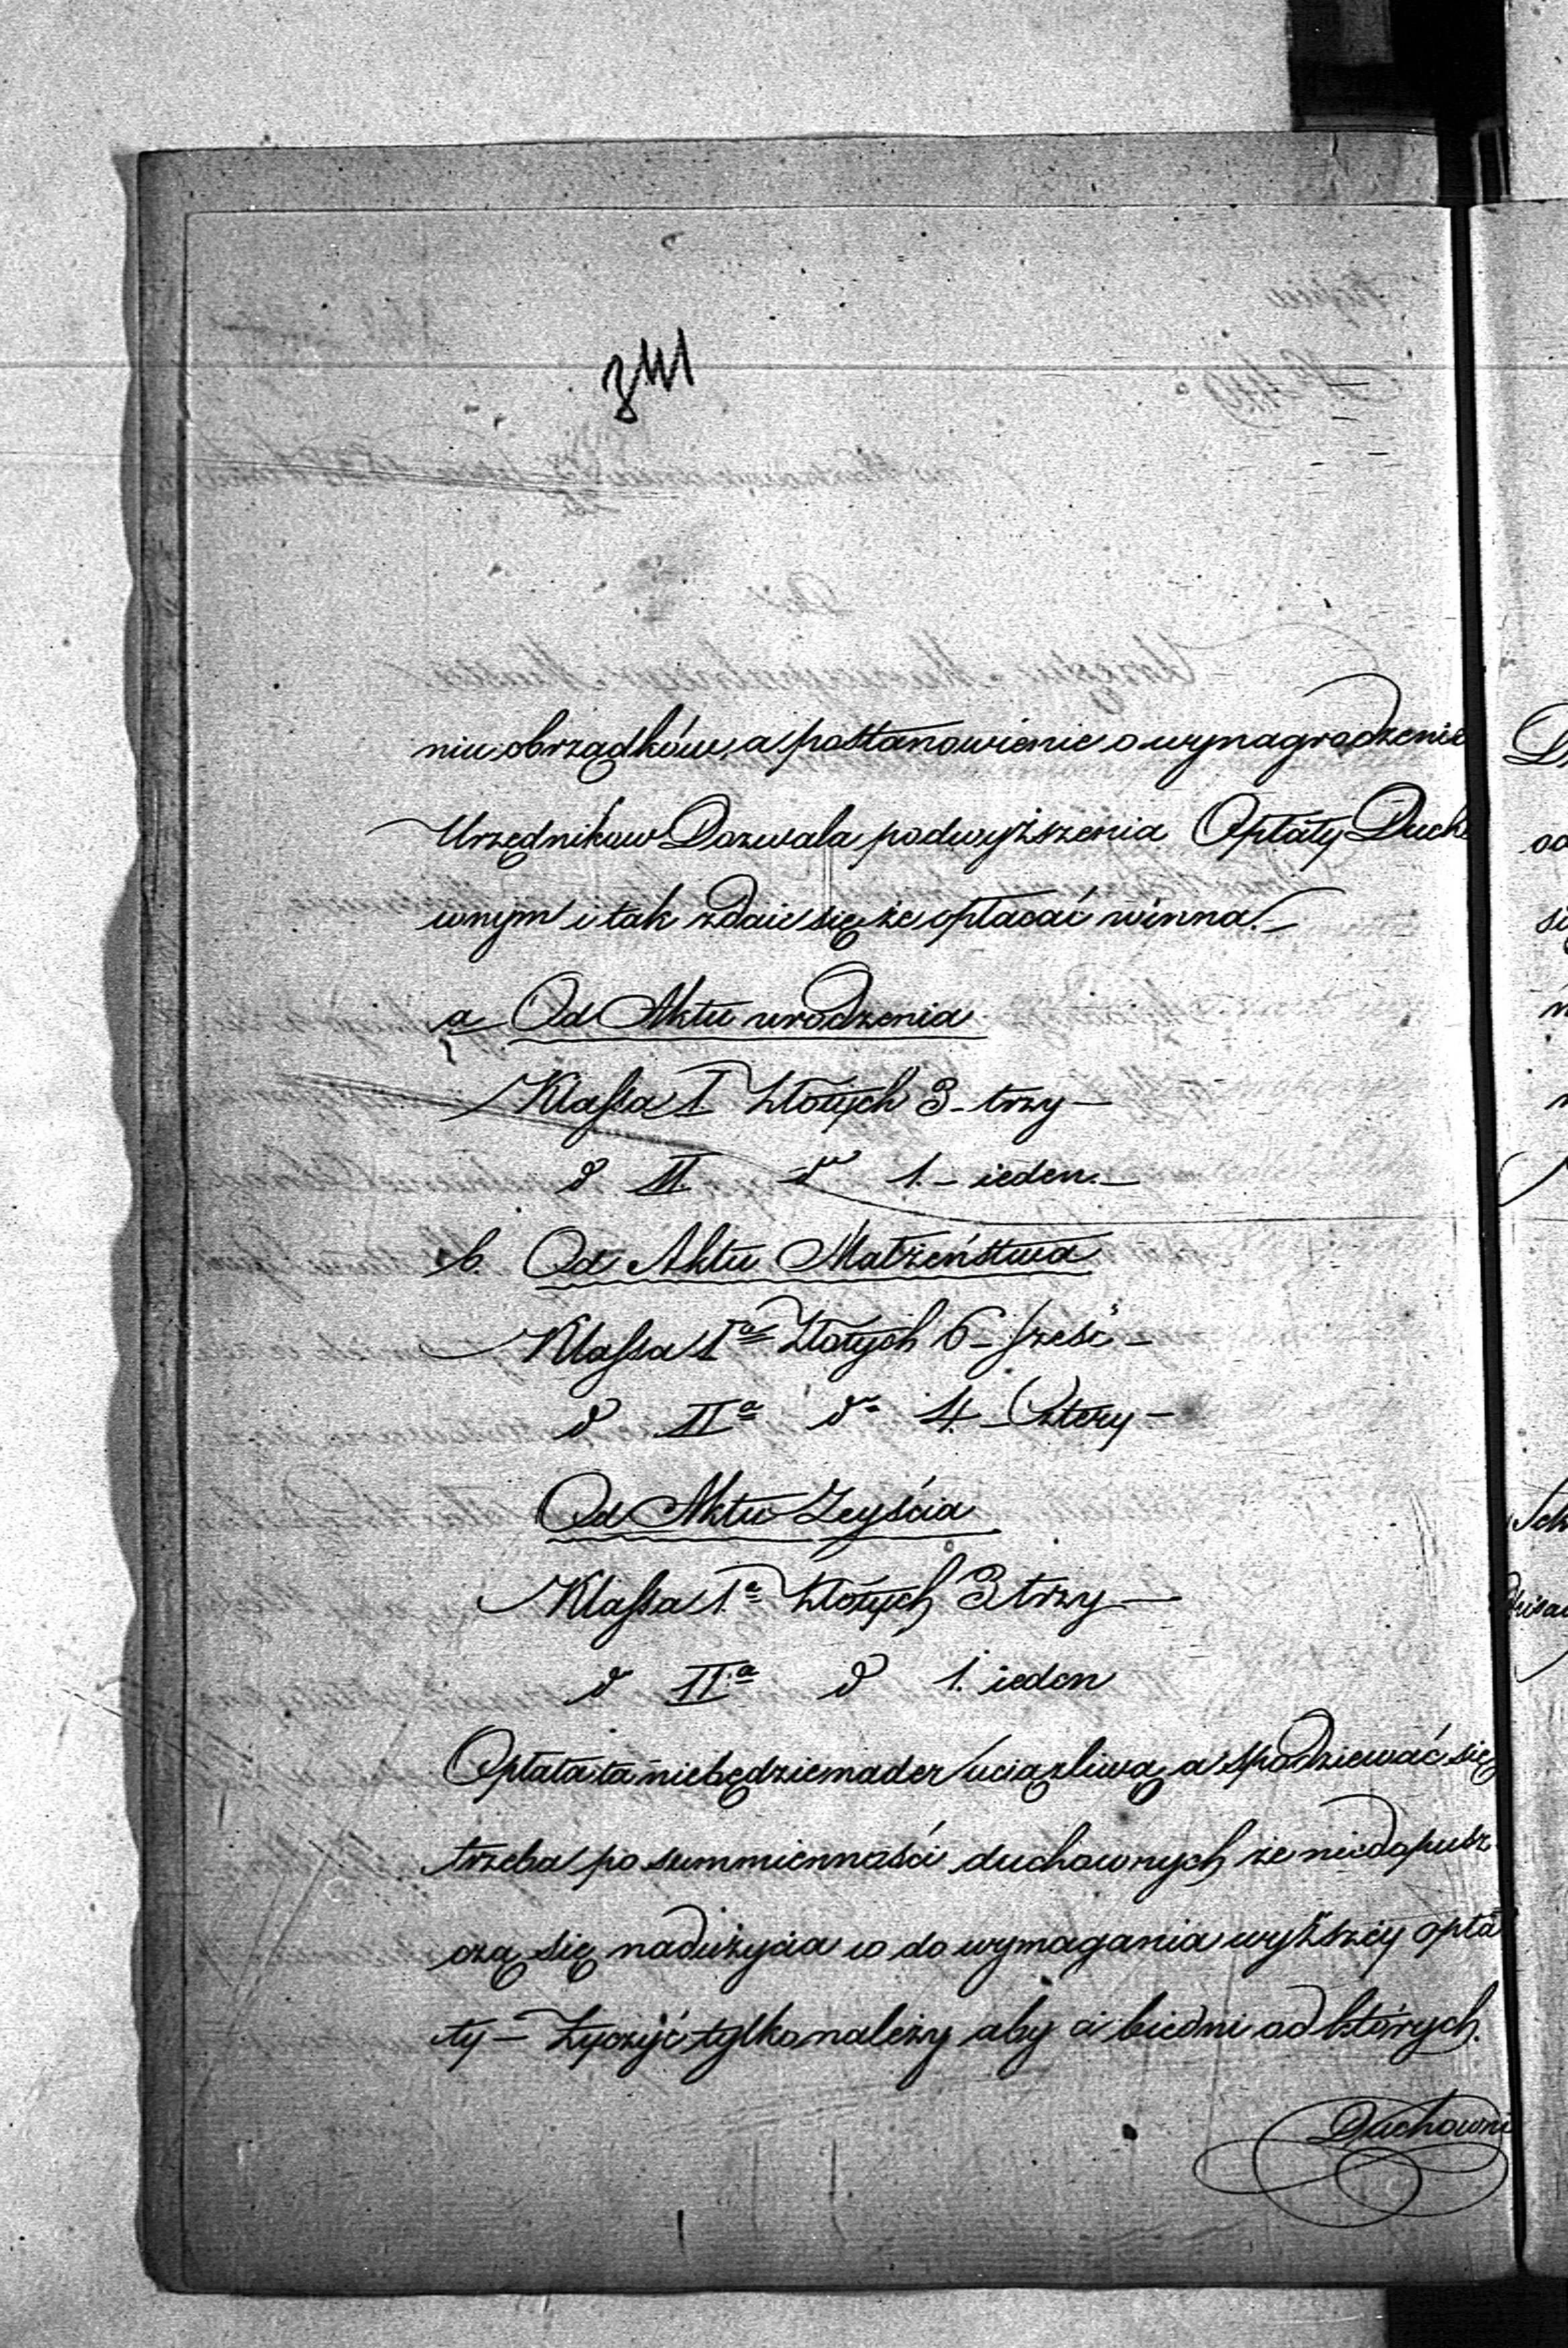 niu obrządków, a postanowienie o wynagrodzenie
Urzędnikow Dozwala podwyższenia Opłaty Ducho
wnym i tak zdaie się że opłacać winna.
a Od Aktu urodzenia
Klassa I Złotych 3 - trzy -
d II. do 1. - ieden. -
b. Od Aktu Małżeństwa
Klassa Ia Złotych 6 - sześć -
d IIa do 4. Cztery -
Od Aktu Zeyścia
Klassa 1a Złotych 3 trzy -
d IIa d 1. ieden
Opłata ta niebędzie nader uciążliwą a spodziewać się
trzeba po summienności duchownych że niedopusz
czą się nadużycia co do wymagania wyższéy opła
ty - Życzyć tylko należy aby ci biedni od których
Duchowni